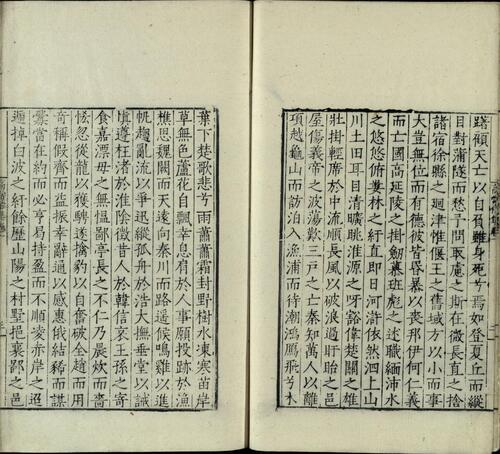 躇顧天亡以自負雖身死兮焉如登夏丘而縱
目對蒲隧而愁予問取慮之斯在微長直之捨
諸宿徐縣之迴津惟偃王之舊域方以小而事
大豈無位而有德彼皆昏暴以喪邦伊何仁義
而亡國高延陵之掛劍慕班彪之述職緬沛水
之悠悠俯婁林之紆直即日河滸依然泗上山
川土田耳目清曠眺淮源之呀豁偉楚關之雄
壯掛輕席於中流順長風以破浪過盱眙之邑
屋傷義帝之波蕩歎三戶之亡秦知萬人以離
項越龜山而訪泊入漁浦而待潮鴻鴈飛兮木
葉下楚歌悲兮雨蕭蕭霜封野樹水凍寒苗岸
草無色蘆花自飄幸息肩於人事願投跡於漁
樵思魏闕而天遠向秦川而路遥候鳴雞以進
帆趨亂流以爭迅縱孤舟於浩大撫垂堂以誡
慎遵枉渚於淮陰徵昔人於韓信哀王孫之寄
食嘉漂母之無慍鄙亭長之不仁乃晨炊而嗇
恡忽從龍以獲騁遂擒豹以自奮破全趙而用
奇稱假齊而益振幸辭通以感惠俄結豨而謀
釁當在約而必亨曷持盈而不順凌赤岸之迢
遰掉白波之紆餘歷山陽之村墅挹襄鄙之邑